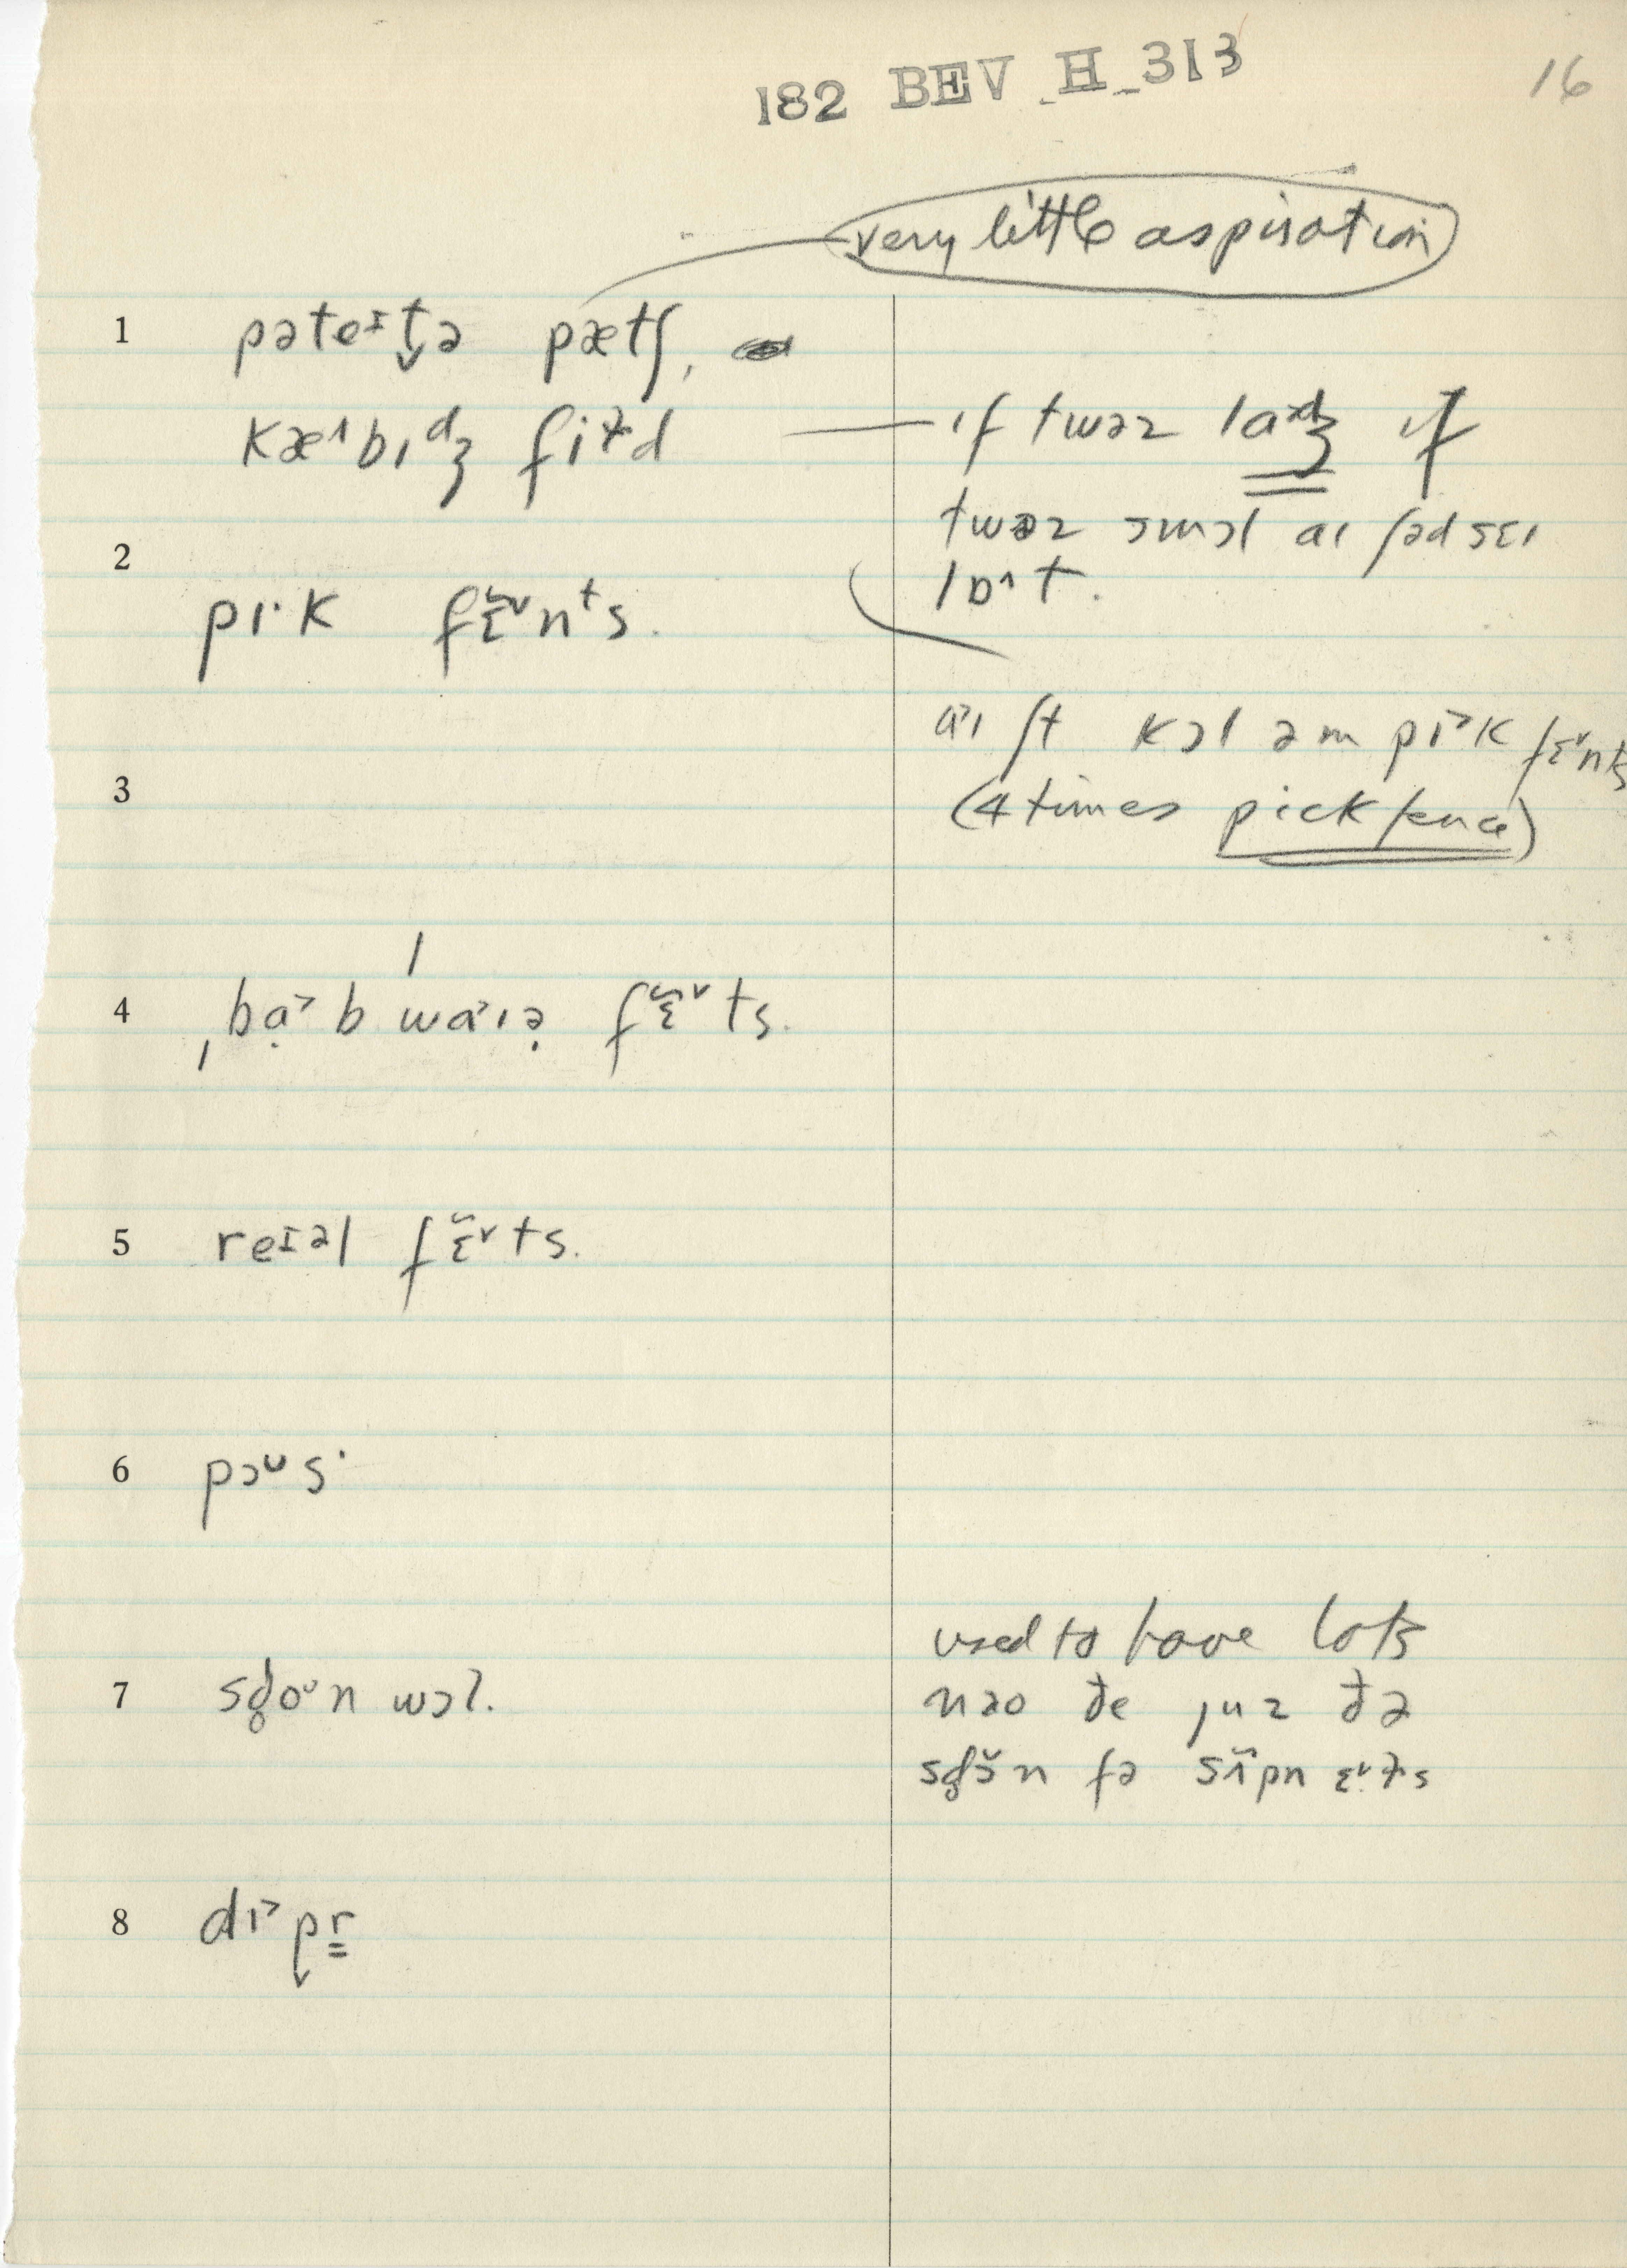 182 BEV_H_313
16
very little aspiration
1 pəteɪt̬ə pætʃ,
kæ˄bɪᵈʒ fiɫd
ɪf twəz laᵈʒ ɪf
twəz smɔl aɪ ʃəd seɪ
lɒ˄t.
2 pɪ·k fɛ̃˅nᵗs.
3 a˃ɪ ʃt kɔl əm pɪ˃k fɛ̃˅nts
(4 times pick fence)
4 ˌba̤˃b ˈwa˃ɪə̣ fɛ̃˅ts.
5 reɪəl fɛ̃˅ts.
6 pɔᴜs·
7 sd̥oᴜn wɔl.
used to have lots
nəo ðe juz ðə
fə
8 dɪ˃p̬r̳